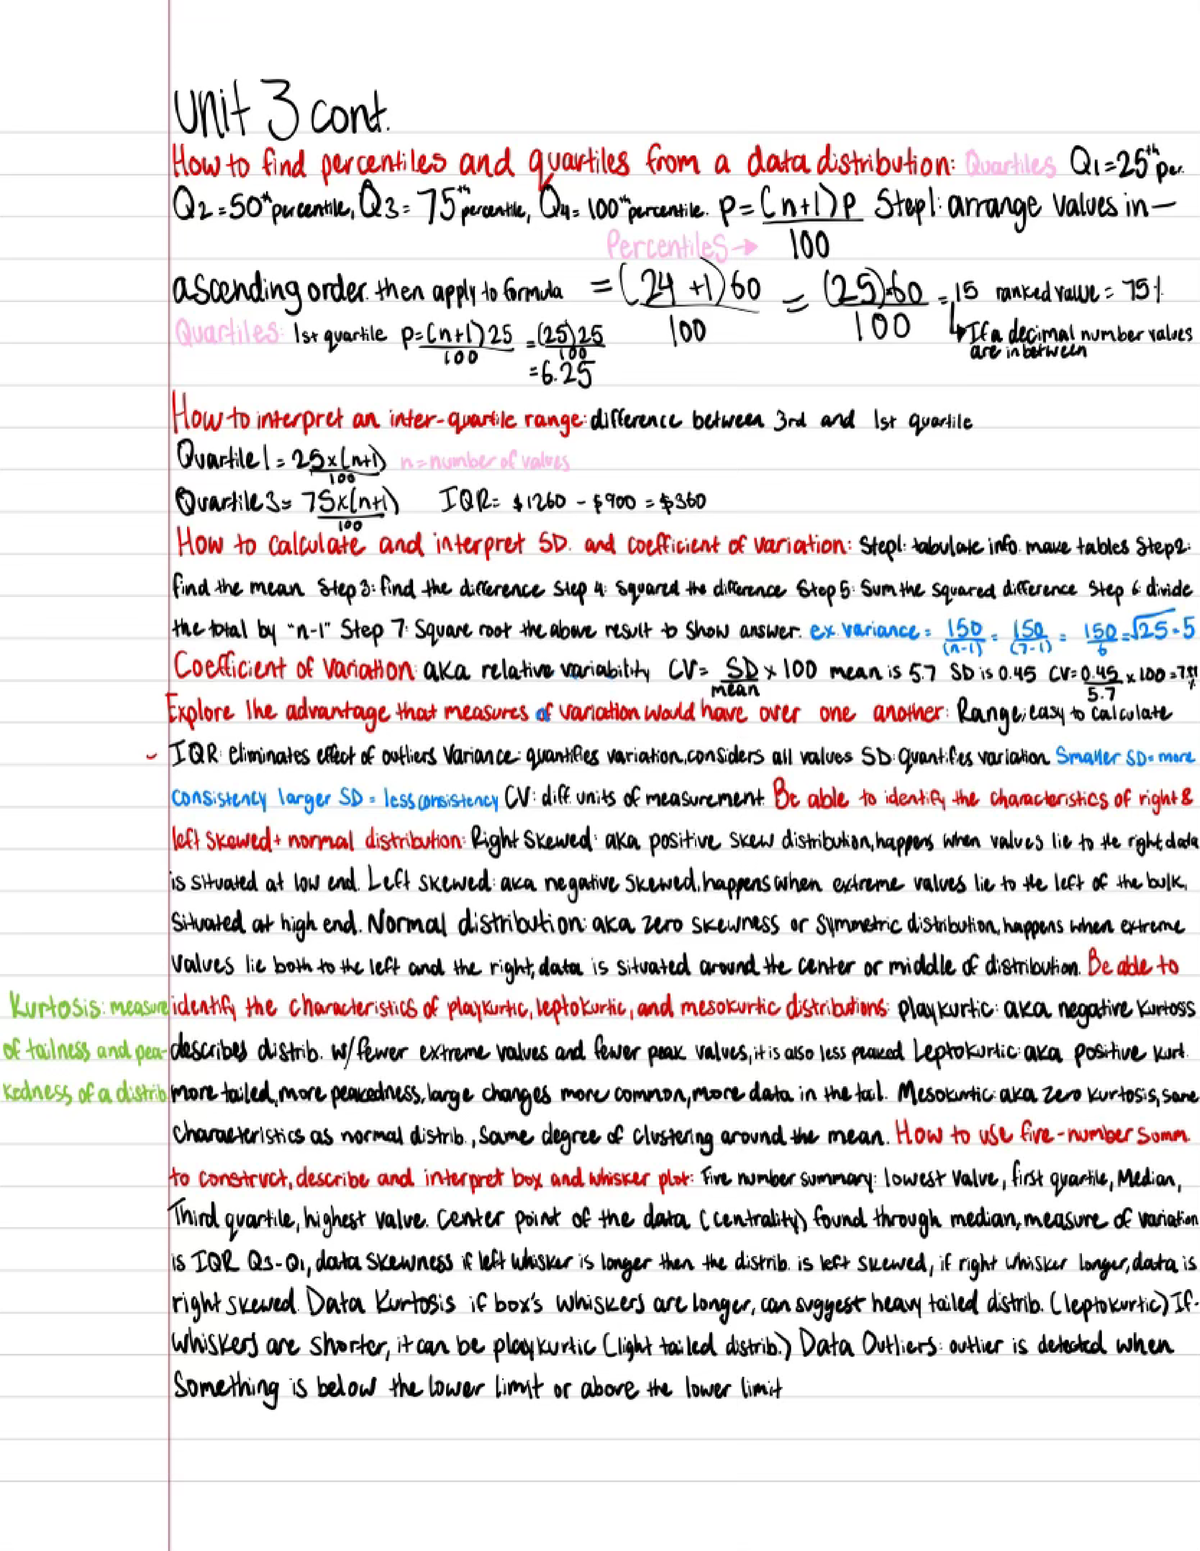 Unit 3 cont.
How to find percentiles and quartiles from a data distribution: Quartiles Q1=25th per.
Q2=50th percentile, Q3=75th percentile, Q4=100th percentile. p=(n+1)p/100 Step1: arrange values in—
Percentiles→
ascending order. then apply to formula =(24+1)60/100 = (25)60/100 =15 ranked value = 75%
↳If a decimal number values are in between
Quartiles: 1st quartile p=(n+1)25/100 =(25)25/100
=6.25
How to interpret an inter-quartile range: difference between 3rd and 1st quartile
Quartile 1 = 25x(n+1)/100 n=number of values
Quartile 3= 75x(n+1)/100 IQR= $1260 - $900 = $360
How to calculate and interpret SD. and coefficient of variation: Step1: tabulate info. make tables Step2:
find the mean Step 3: find the difference Step 4: squared the difference Step 5: Sum the squared difference Step 6: divide
the total by "n-1" Step 7: Square root the above result to show answer. ex. variance = 150/(n-1) = 150/(7-1) = 150/6 =√25=5
Coefficient of Variation: aka relative variability CV= SD/mean x 100 mean is 5.7 SD is 0.45 CV= 0.45/5.7 x 100 =
Explore the advantage that measures of variation would have over one another: Range: easy to calculate
- IQR: eliminates effect of outliers Variance: quantifies variation, considers all values SD: quantifies variation. Smaller SD= more
consistency larger SD = less consistency CV: diff. units of measurement. Be able to identify the characteristics of right &
left skewed + normal distribution: Right Skewed: aka positive skew distribution, happens when values lie to the right, data
is situated at low end. Left skewed: aka negative skewed, happens when extreme values lie to the left of the bulk,
situated at high end. Normal distribution: aka zero skewness or symmetric distribution, happens when extreme
values lie both to the left and the right, data is situated around the center or middle of distribution. Be able to
identify the characteristics of playkurtic, leptokurtic, and mesokurtic distributions: playkurtic: aka negative kurtoss
Kurtosis: measure
of tailness and pea-
kedness of a distrib
describes distrib. w/fewer extreme values and fewer peak values, it is also less peaked Leptokurtic: aka positive kurt.
more tailed, more peakedness, large changes more common, more data in the tail. Mesokurtic: aka zero kurtosis, same
characteristics as normal distrib., same degree of clustering around the mean. How to use five-number summ.
to construct, describe and interpret box and whisker plot: Five number summary: lowest value, first quartile, Median,
Third quartile, highest value. Center point of the data (centrality) found through median, measure of variation
is IQR Q3-Q1, data skewness if left whisker is longer then the distrib. is left skewed, if right whisker longer, data is
right skewed. Data Kurtosis if box's whiskers are longer, can suggest heavy tailed distrib. (leptokurtic) If-
whiskers are shorter, it can be playkurtic (light tailed distrib.) Data Outliers: outlier is detected when
something is below the lower limit or above the lower limit